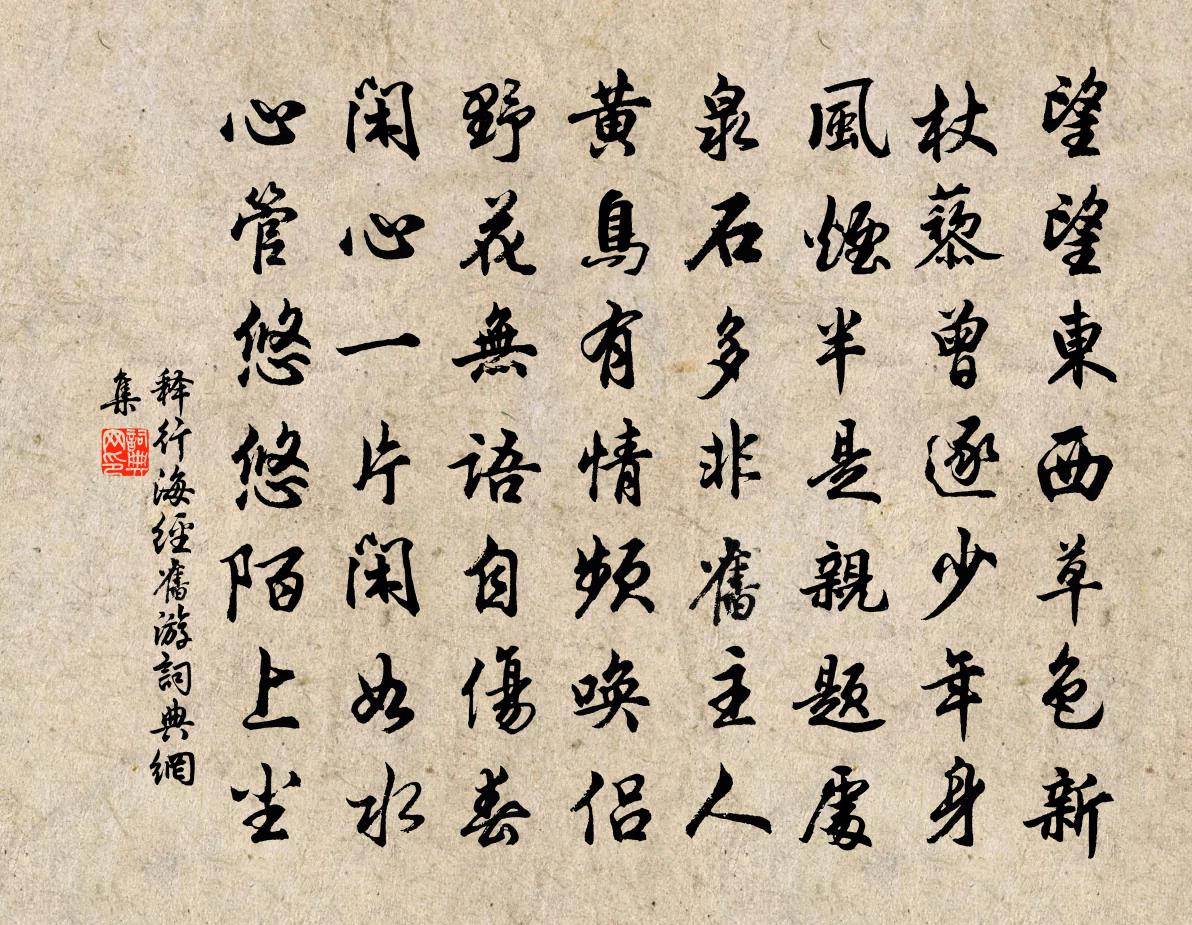 望望東西草色新
杖藜曾逐少年身
風煙半是親題處
泉石多非舊主人
黃鳥有情頻喚侶
野花無語自傷春
閑心一片閑如水
心管悠悠陌上尘
释行海經舊游詞典網
集
詞典
网印